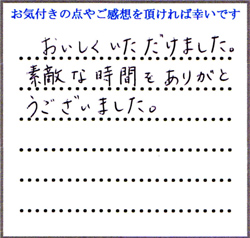 お気付きの点やご感想を頂ければ幸いです
おいしくいただけました。
素敵な時間をありがと
うございました。